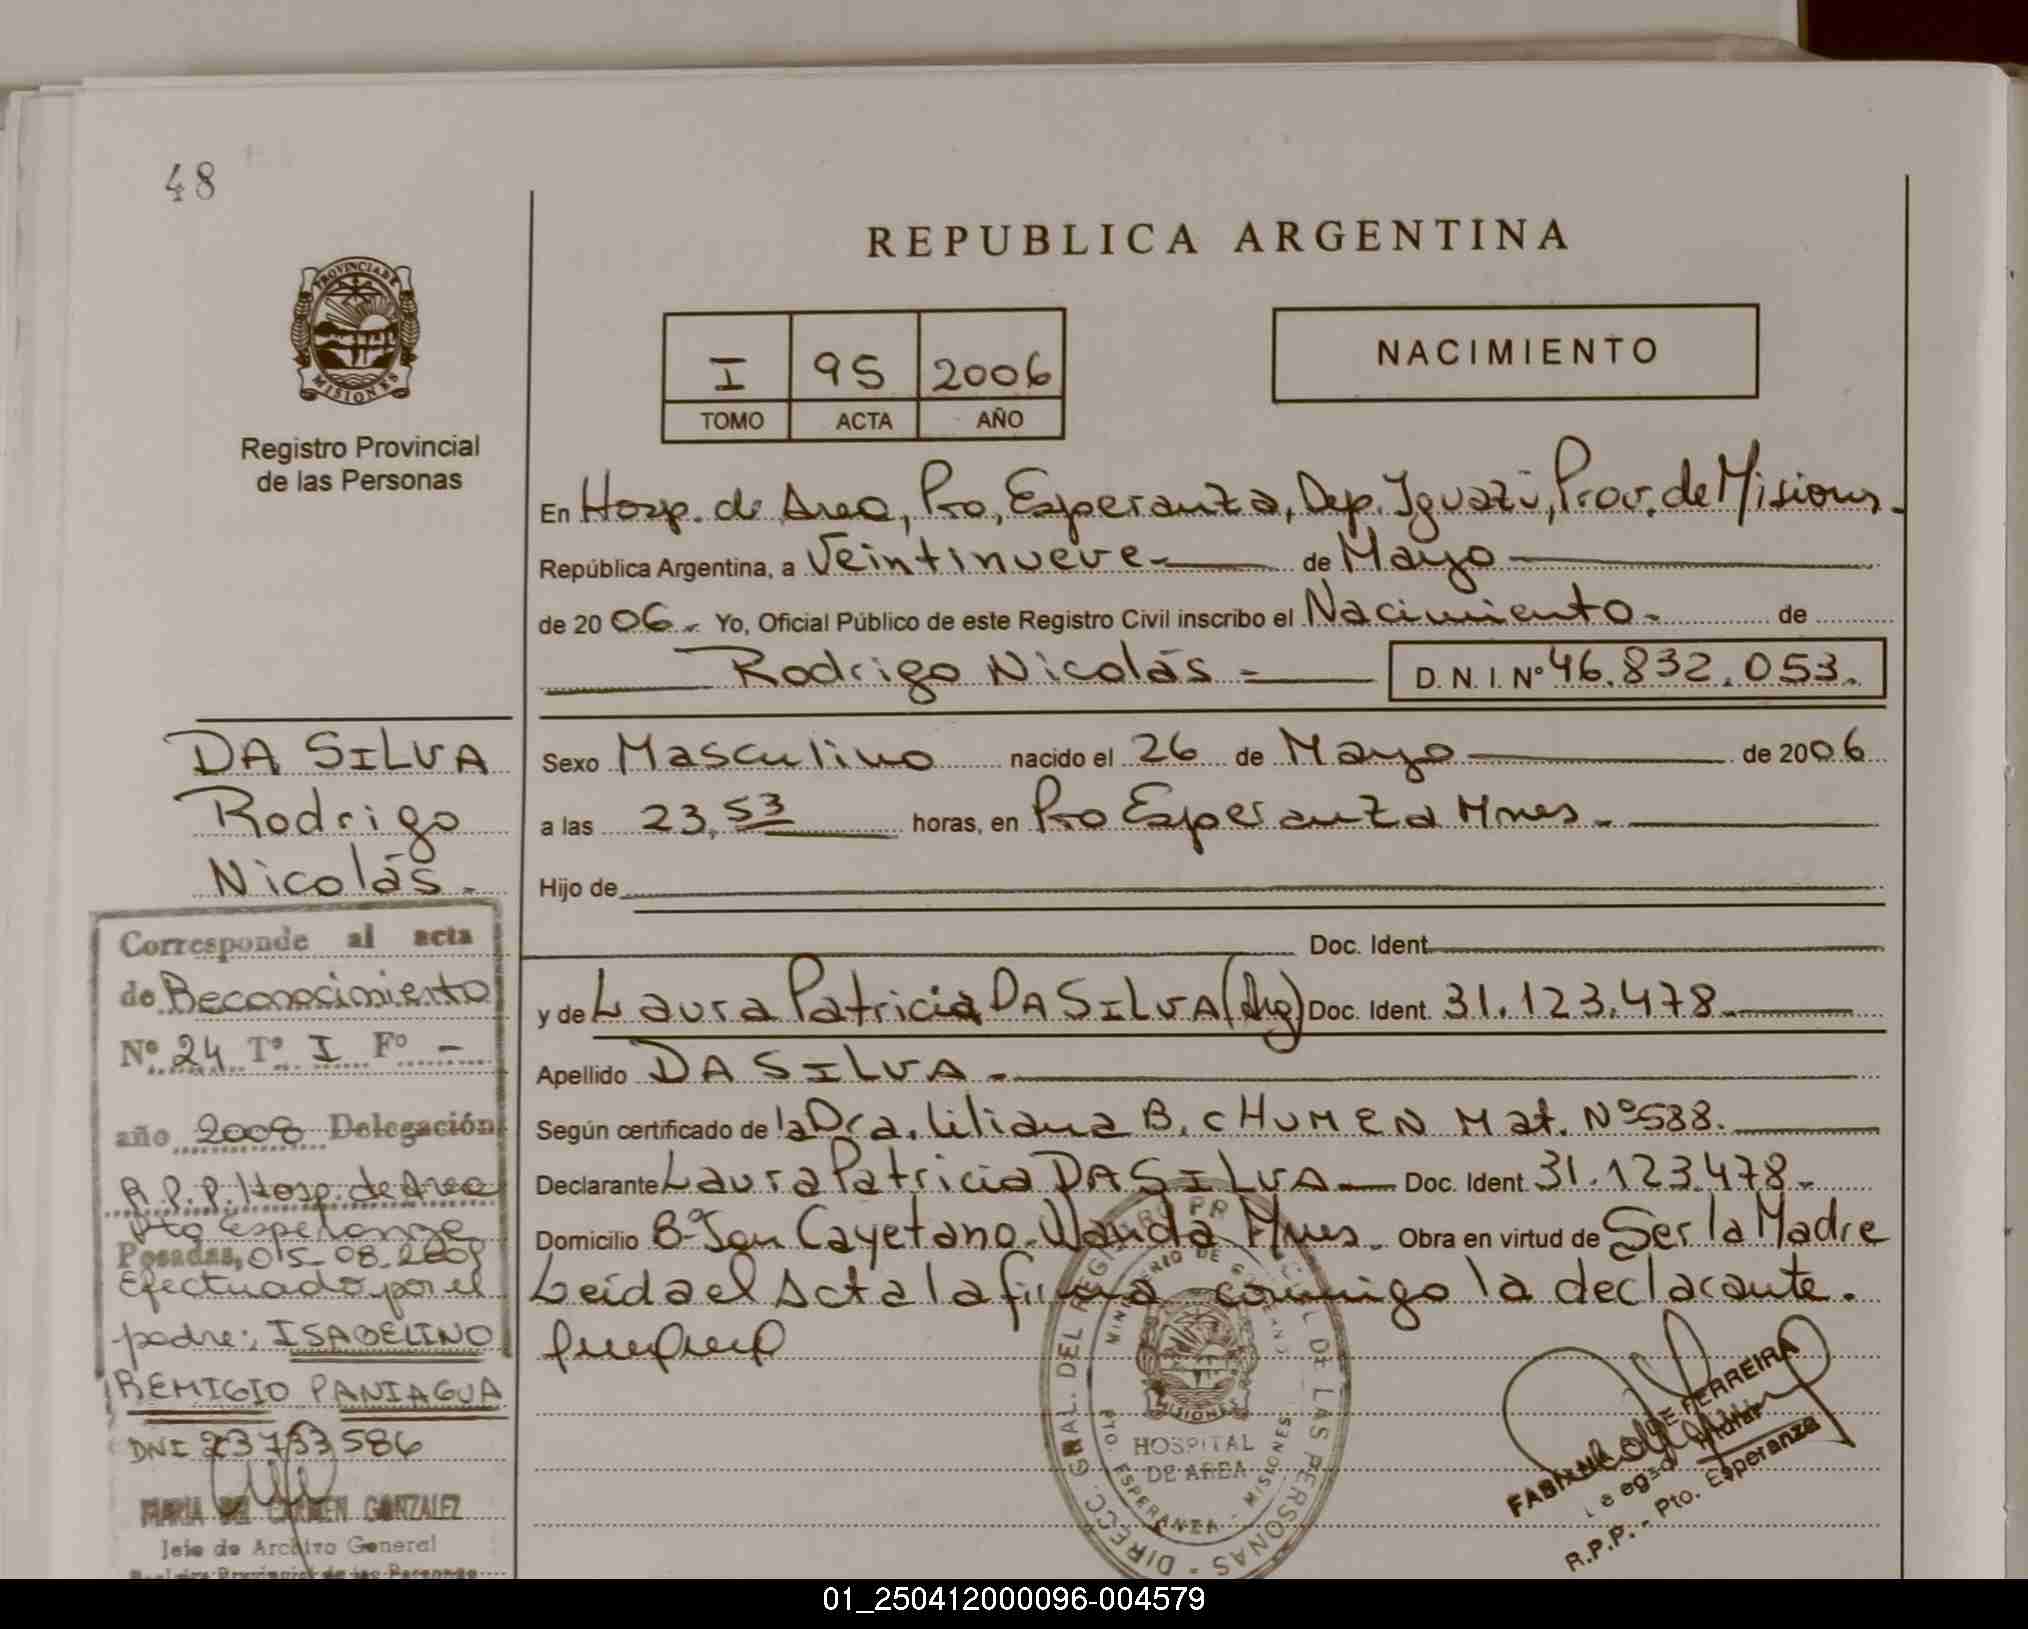 48
REPUBLICA ARGENTINA
PROVINCIA DE
MISIONES
Registro Provincial
de las Personas
I 95 2006
TOMO ACTA AÑO
NACIMIENTO
En Hosp. de Area, Pto, Esperanza, Dep. Iguazú, Prov. de Misiones.
República Argentina, a Veintinueve - de Mayo
de 20 06. Yo, Oficial Público de este Registro Civil inscribo el Nacimiento. de
Rodrigo Nicolás = D. N. I. Nº 46.832.053.
DA SILVA
Rodrigo
Nicolás.
Sexo Masculino nacido el 26 de Mayo de 2006
a las 23,53 horas, en Pto Esperanza Mnes.
Hijo de
Doc. Ident.
y de Laura Patricia DA SILVA (Arg) Doc. Ident. 31.123.478.
Apellido DA SILVA -
Según certificado de la Dra. Liliana B. CHUMEN Mat. Nº 588.
Declarante Laura Patricia DA SILVA Doc. Ident. 31.123.478.
Domicilio Bº San Cayetano. Wanda Mnes. Obra en virtud de Ser la Madre
Leída el Acta la firma conmigo la declarante.
Corresponde al acta
de Reconocimiento
Nº 24 Tº I Fº -
año 2008 Delegación
R.P.P. Hosp. de Area
Pto Esperanza
Posadas, 05-08-2008
Efectuado por el
padre: ISABELINO
REMIGIO PANIAGUA
DNI 23733586
MARIA DEL CARMEN GONZALEZ
Jefe de Archivo General
Registro Provincial de las Personas
DIRECC. GRAL. DEL REGISTRO PROVINCIAL DE LAS PERSONAS -
MINISTERIO DE GOBIERNO
MISIONES
HOSPITAL
DE AREA
PTO. ESPERANZA - MISIONES
DE FERREIRA
R.P.P. - Pto. Esperanza
01_250412000096-004579